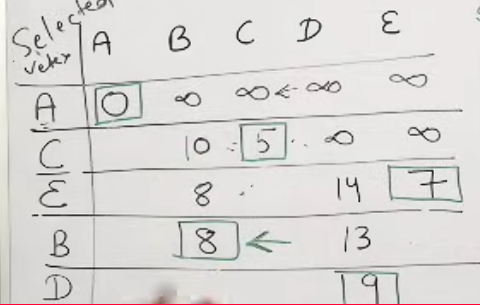 Selected
vetex A B C D E
A 0 ∞ ∞ ← ∞ ∞
C 10 5 ∞ ∞
E 8 14 7
B 8 ← 13
D 9